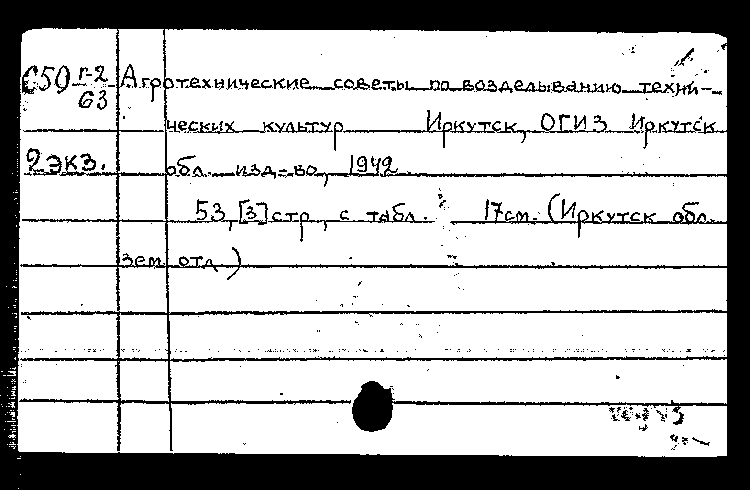 С50 Г-2 Агротехнические советы по возделыванию техни-
63
ческих культур Иркутск, ОГИЗ Иркутск
2 экз. обл. изд-во, 1942.
53, [3] стр, с табл. 17см. (Иркутск обл.
зем. отд.)